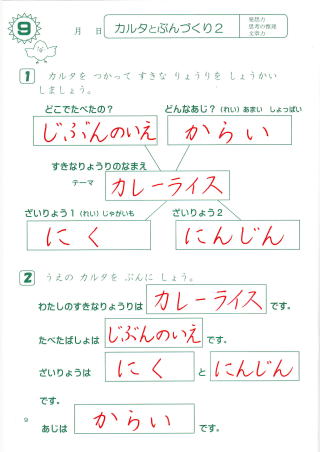 9
月 日
カルタとぶんづくり2
発想力
思考の整理
文章力
1 カルタを つかって すきな りょうりを しょうかい
しましょう。
どこでたべたの? どんなあじ?(れい)あまい しょっぱい
じぶんのいえ からい
すきなりょうりのなまえ
テーマ カレーライス
ざいりょう1(れい)じゃがいも ざいりょう2
にく にんじん
2 うえの カルタを ぶんに しょう。
わたしのすきなりょうりは カレーライス です。
たべたばしょは じぶんのいえ です。
ざいりょうは にく と にんじん
です。
あじは からい です。
9